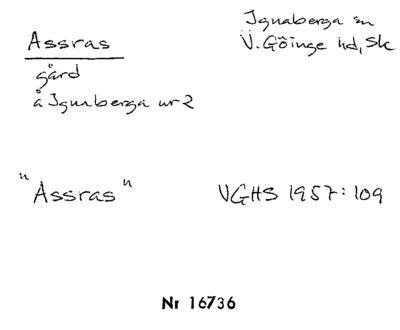 Assras
gård
å Ignaberga nr 2
Ignaberga sn
V. Göinge hd, Sk
"Assras"
VGHS 1957: 109
Nr 16736